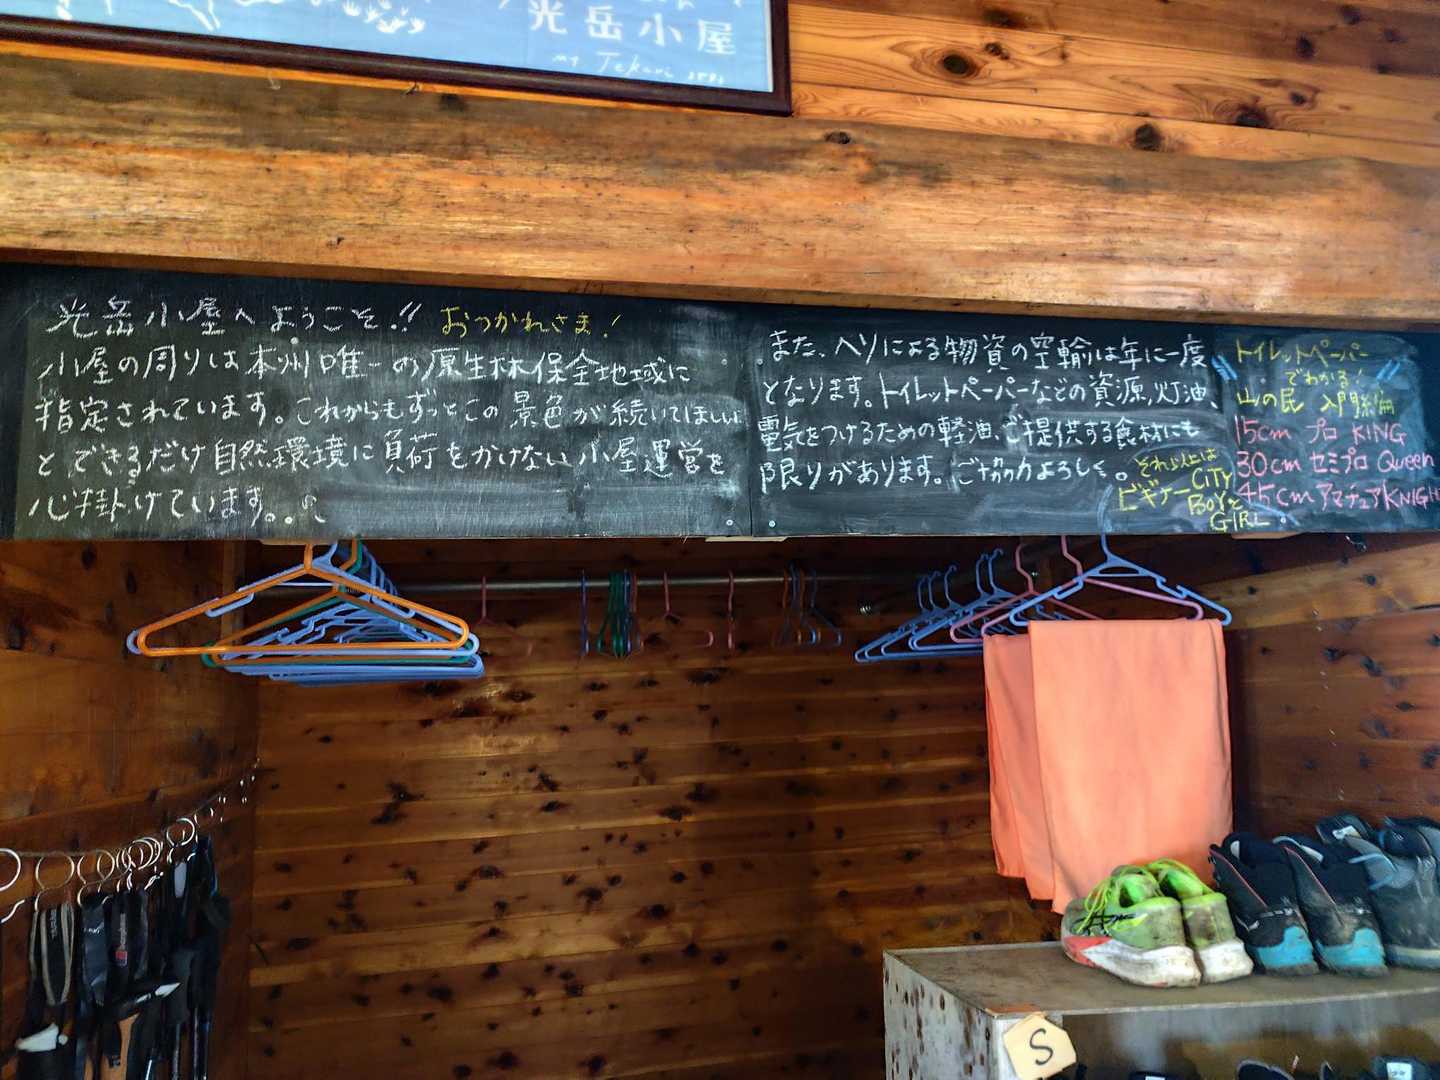 光岳小屋
光岳小屋へようこそ!! おつかれさま!
小屋の周りは本州唯一の原生林保全地域に
指定されています。これからもずっとこの景色が続いてほしい
とできるだけ自然環境に負荷をかけない小屋運営を
心掛けています。
また、ヘリによる物資の空輸は年に一度
となります。トイレットペーパーなどの資源、灯油、
電気をつけるための軽油、ご提供する食材にも
限りがあります。ご協力よろしく。
トイレットペーパー
でわかる!
山の民 入門編
15cm プロ KING
30cm セミプロ Queen
45cm アマチュア KNIGHT
それ以上は
ビギナー CITY
BOYと
GIRL
S